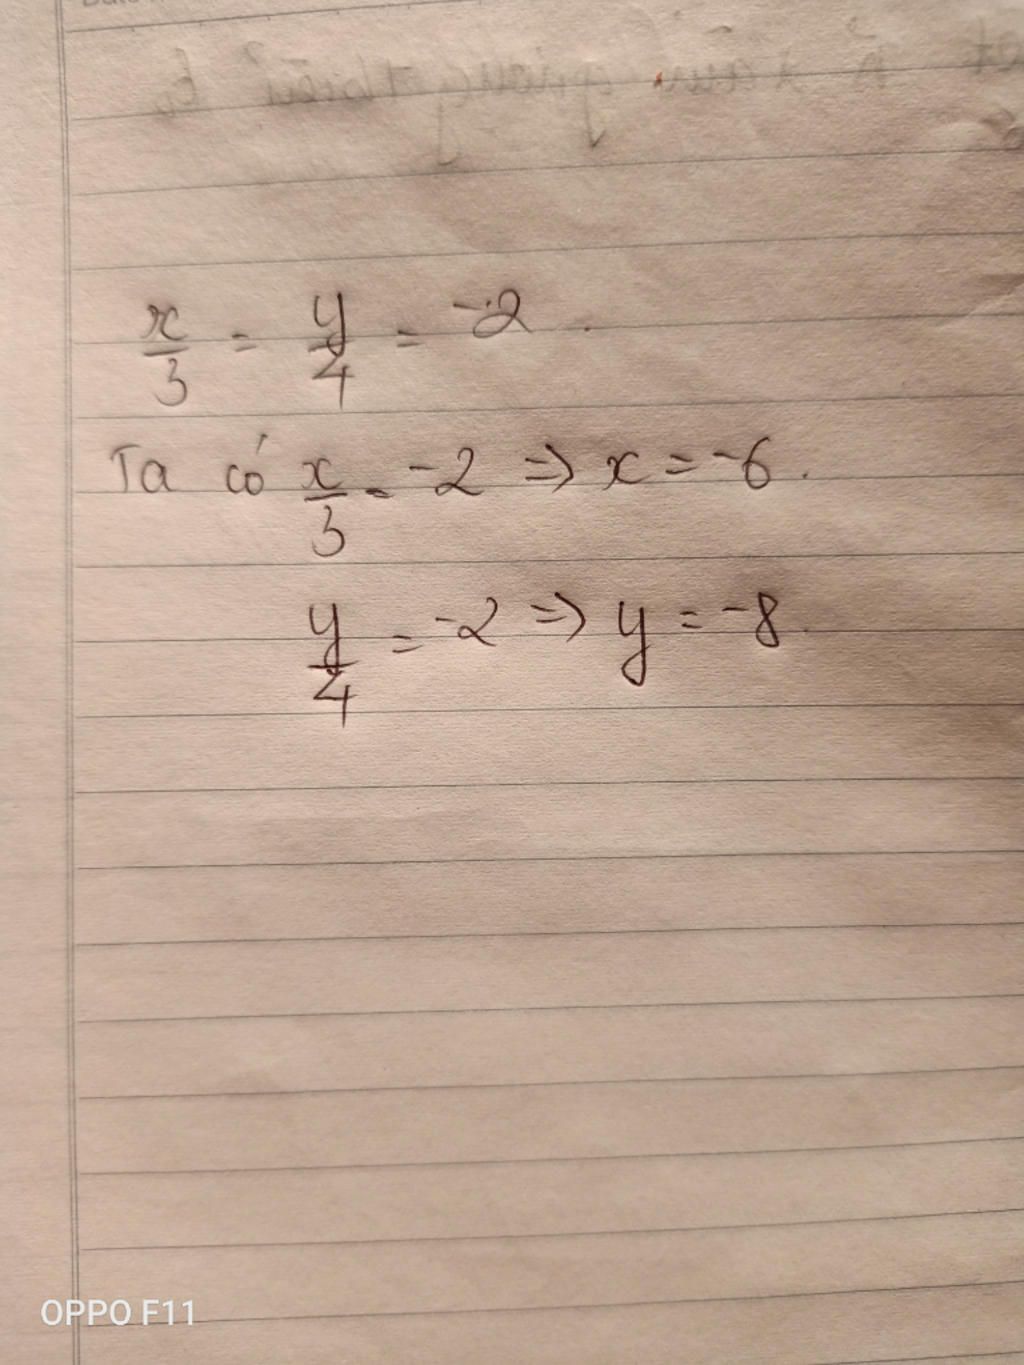 x/3 = y/4 = -2.
Ta có x/3 = -2 => x = -6.
y/4 = -2 => y = -8.
OPPO F11